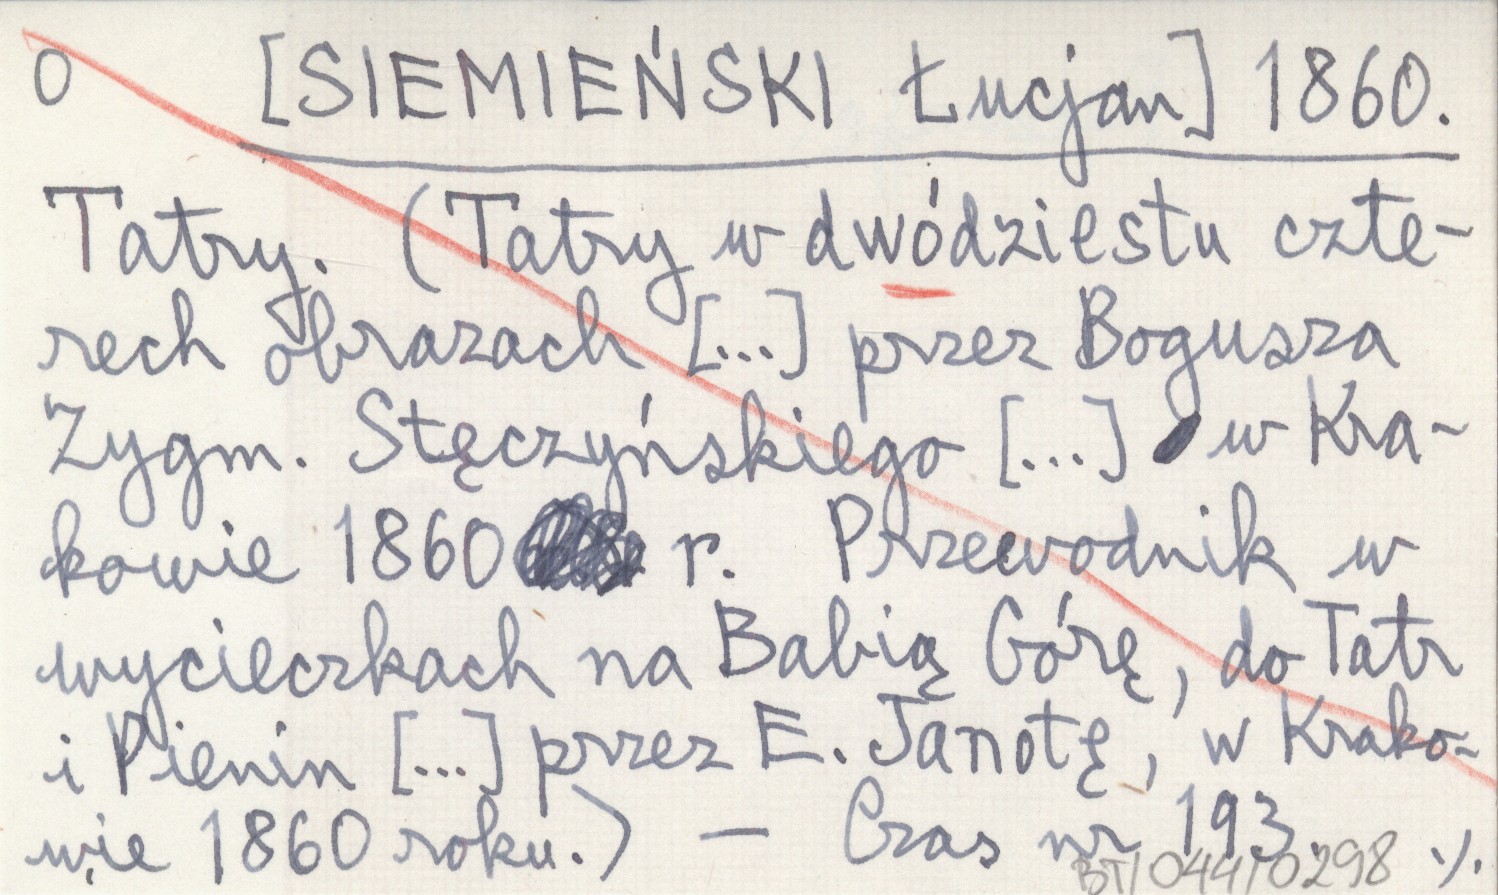 O [SIEMIEŃSKI Łucjan] 1860.
Tatry. (Tatry w dwódziestu czte-
rech obrazach [...] przez Bogusza
Zygm. Stęczyńskiego [...] w Kra-
kowie 1860 r. Przewodnik w
wycieczkach na Babią Górę, do Tatr
i Pienin [...] przez E. Janotę, w Krako-
wie 1860 roku.) — Czas nr 193. ./.
BT/044/0298